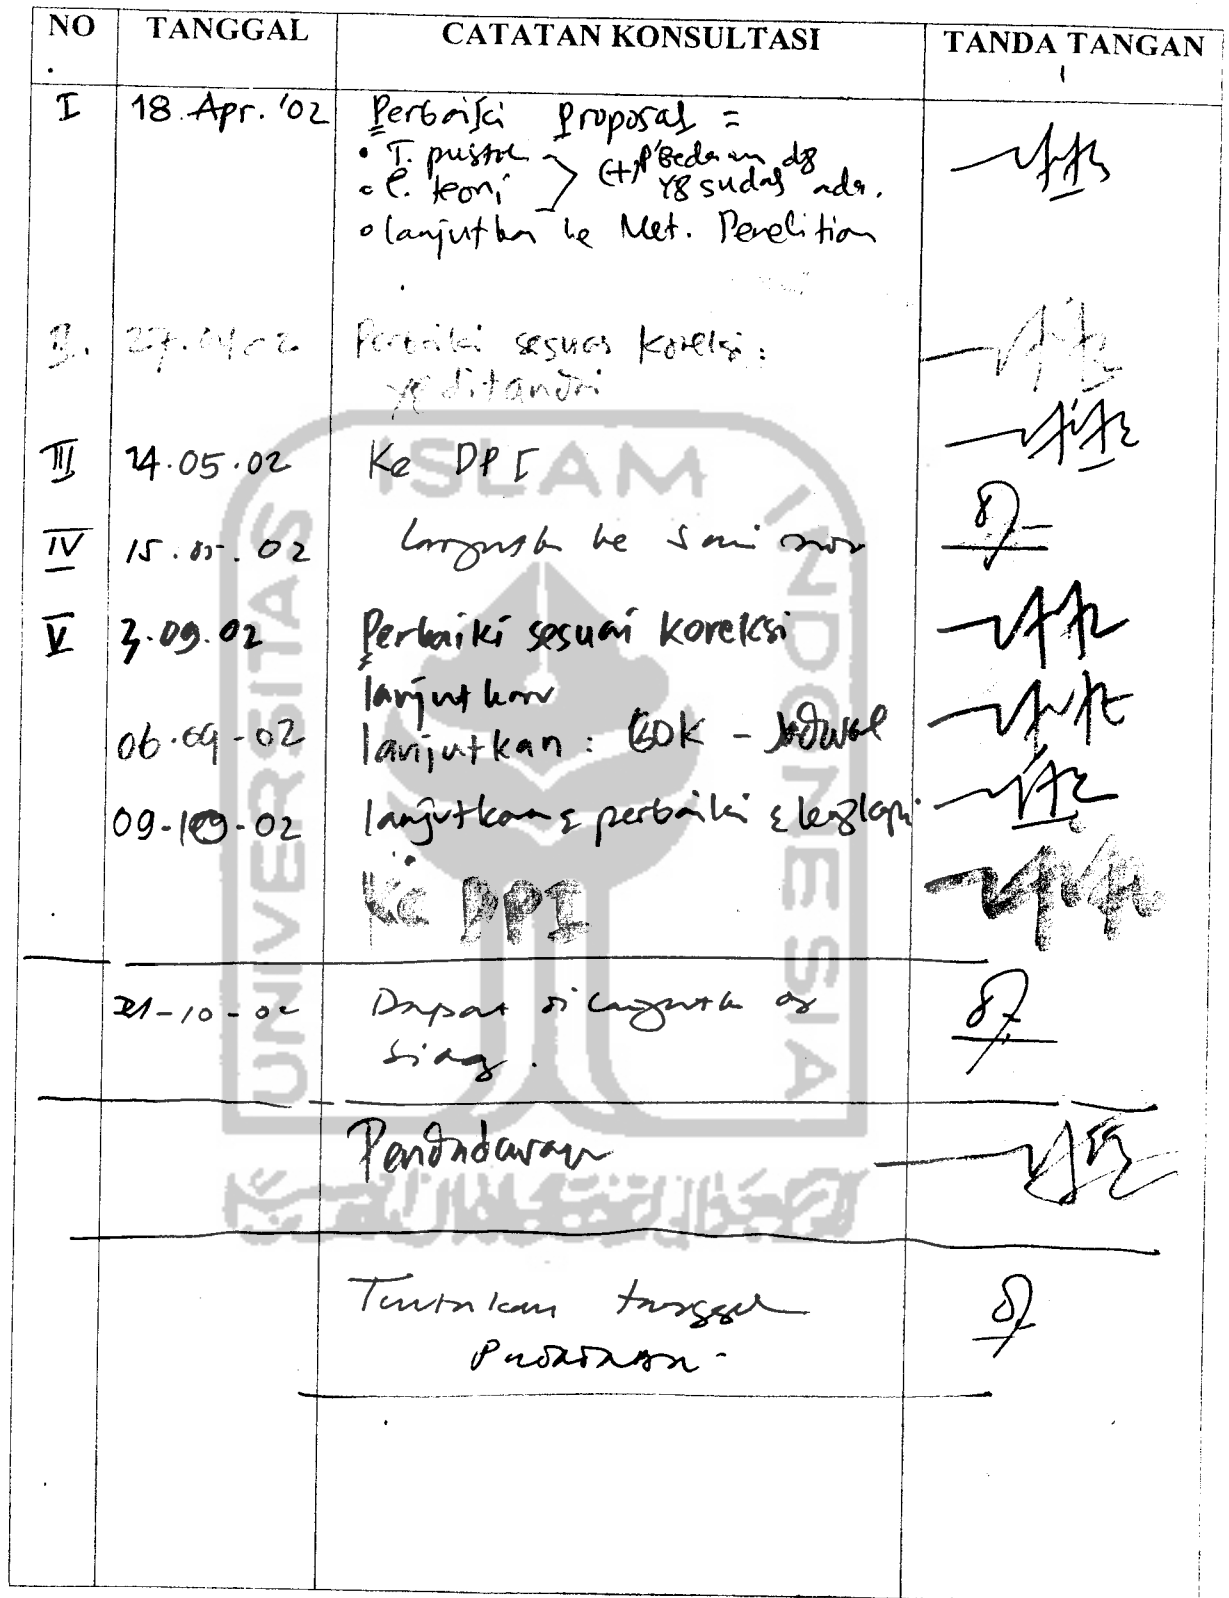 NO. TANGGAL CATATAN KONSULTASI TANDA TANGAN
I 18 Apr. '02 Perbaiki Proposal =
• T. pustak
• L. teori (+) P'bedaan dg
yg sudah ada.
• lanjutkan ke Met. Penelitian
II. 27.04.02 Perbaiki sesuai Koreksi :
yg ditandai
III 14.05.02 Ke DPI
IV 15.05.02 ke
V 3.09.02 Perbaiki sesuai koreksi
lanjutkan
06-09-02 lanjutkan : - Jadwal
09-09-02 lanjutkan & perbaiki & lengkapi
Ke DPI
21-10-02 Dapat dilanjutk dg
sidang.
Pendadaran
Tentukan tanggal
Pendadaran.
UNIVERSITAS ISLAM INDONESIA